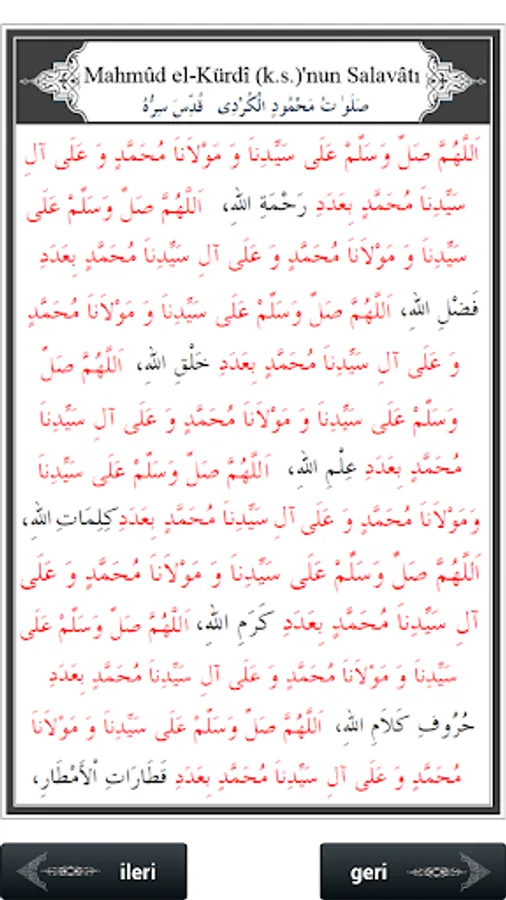 Mahmûd el-Kürdî (k.s.)'nun Salavâtı
صَلَوٰاتُ مَحْمُودٍ الْكُرْدِى قُدِّسَ سِرُّهُ
اَللّٰهُمَّ صَلِّ وَسَلِّمْ عَلَى سَيِّدِنَا وَ مَوْلَانَا مُحَمَّدٍ وَ عَلَى آلِ
سَيِّدِنَا مُحَمَّدٍ بِعَدَدِ رَحْمَةِ اللّٰهِ، اَللّٰهُمَّ صَلِّ وَسَلِّمْ عَلَى
سَيِّدِنَا وَ مَوْلَانَا مُحَمَّدٍ وَ عَلَى آلِ سَيِّدِنَا مُحَمَّدٍ بِعَدَدِ
فَضْلِ اللّٰهِ، اَللّٰهُمَّ صَلِّ وَسَلِّمْ عَلَى سَيِّدِنَا وَ مَوْلَانَا مُحَمَّدٍ
وَ عَلَى آلِ سَيِّدِنَا مُحَمَّدٍ بِعَدَدِ خَلْقِ اللّٰهِ، اَللّٰهُمَّ صَلِّ
وَسَلِّمْ عَلَى سَيِّدِنَا وَ مَوْلَانَا مُحَمَّدٍ وَ عَلَى آلِ سَيِّدِنَا
مُحَمَّدٍ بِعَدَدِ عِلْمِ اللّٰهِ، اَللّٰهُمَّ صَلِّ وَسَلِّمْ عَلَى سَيِّدِنَا
وَمَوْلَانَا مُحَمَّدٍ وَ عَلَى آلِ سَيِّدِنَا مُحَمَّدٍ بِعَدَدِ كَلِمَاتِ اللّٰهِ،
اَللّٰهُمَّ صَلِّ وَسَلِّمْ عَلَى سَيِّدِنَا وَ مَوْلَانَا مُحَمَّدٍ وَ عَلَى
آلِ سَيِّدِنَا مُحَمَّدٍ بِعَدَدِ كَرَمِ اللّٰهِ، اَللّٰهُمَّ صَلِّ وَسَلِّمْ عَلَى
سَيِّدِنَا وَ مَوْلَانَا مُحَمَّدٍ وَ عَلَى آلِ سَيِّدِنَا مُحَمَّدٍ بِعَدَدِ
حُرُوفِ كَلَامِ اللّٰهِ، اَللّٰهُمَّ صَلِّ وَسَلِّمْ عَلَى سَيِّدِنَا وَ مَوْلَانَا
مُحَمَّدٍ وَ عَلَى آلِ سَيِّدِنَا مُحَمَّدٍ بِعَدَدِ قَطَارَاتِ اْلاَمْطَارِ،
ileri geri